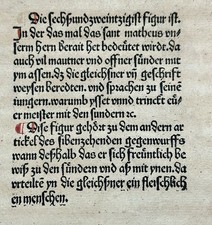 Die sechßundzweintzigist figur ist.
In der das mal das sant matheus vn-
serm hern berait het bedeütet wirde. Da
auch vil mautner und offner sünder mit
ym assen. dz die gleichßner vn̄ geschrifft
weysen beredten. vnd sprachen zu seine
iungern. warumb ysset vnnd trinckt eü-
er meister mit den sundern ⁊c.
¶ Dise figur gehört zů dem andern ar-
tickel des sibenzehenden gegenwurffs
wann deßhalb das er sich freüntlich be
wiß zu den sündern vnd aß mit ynen. da
vrteilte yn die gleichßner ein fleischlich
en menschen.